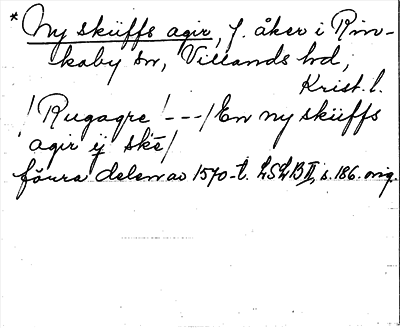 * Ny sküffs agir, f. åker i Rin-
kaby sn, Villands hd,
Krist. l.
/Rugagre/---/En ny sküffs
agir ij skē/
förra delen av 1570-t. LSLB II, s. 186. orig.